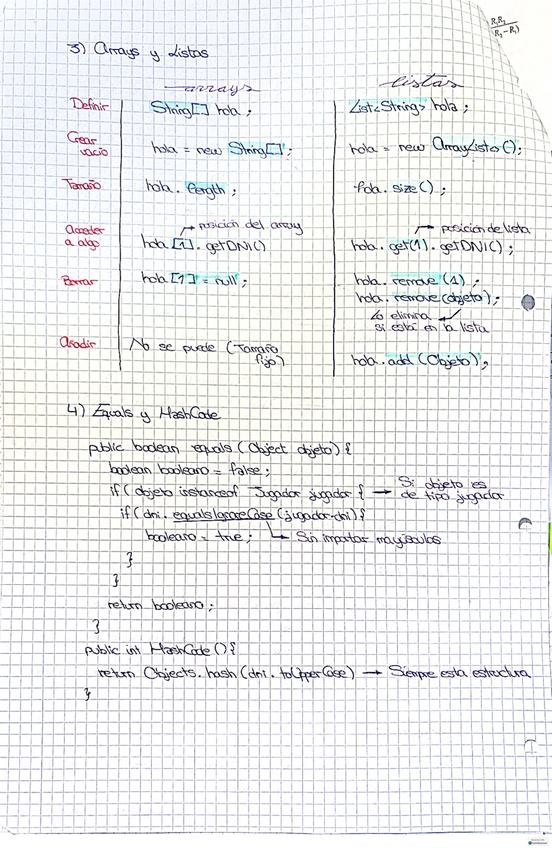 R₁R₂
(R₂-R₁)
3) Arrays y Listas
arrays listas
Definir String[] hola; List<String> hola;
Crear vacio hola = new String[]; hola = new ArrayList<>();
Tamaño hola.length; hola.size();
→ posición del array → posición de lista
Acceder a algo hola[1].getDNI() hola.get(1).getDNI();
Borrar hola[1] = null; hola.remove(1);
hola.remove(objeto);
↳ elimina
si está en la lista
Añadir No se puede (Tamaño
fijo) hola.add(Objeto);
4) Equals y HashCode
public boolean equals(Object objeto){
boolean booleano = false;
if(objeto instanceof Jugador jugador{ → Si objeto es
de tipo jugador
if(dni.equalsIgnoreCase(jugador.dni){
booleano = true; ↳ Sin importar mayúsculas
}
}
return booleano;
}
public int HashCode(){
return Objects.hash(dni.toUpperCase) → Siempre esta estructura
}